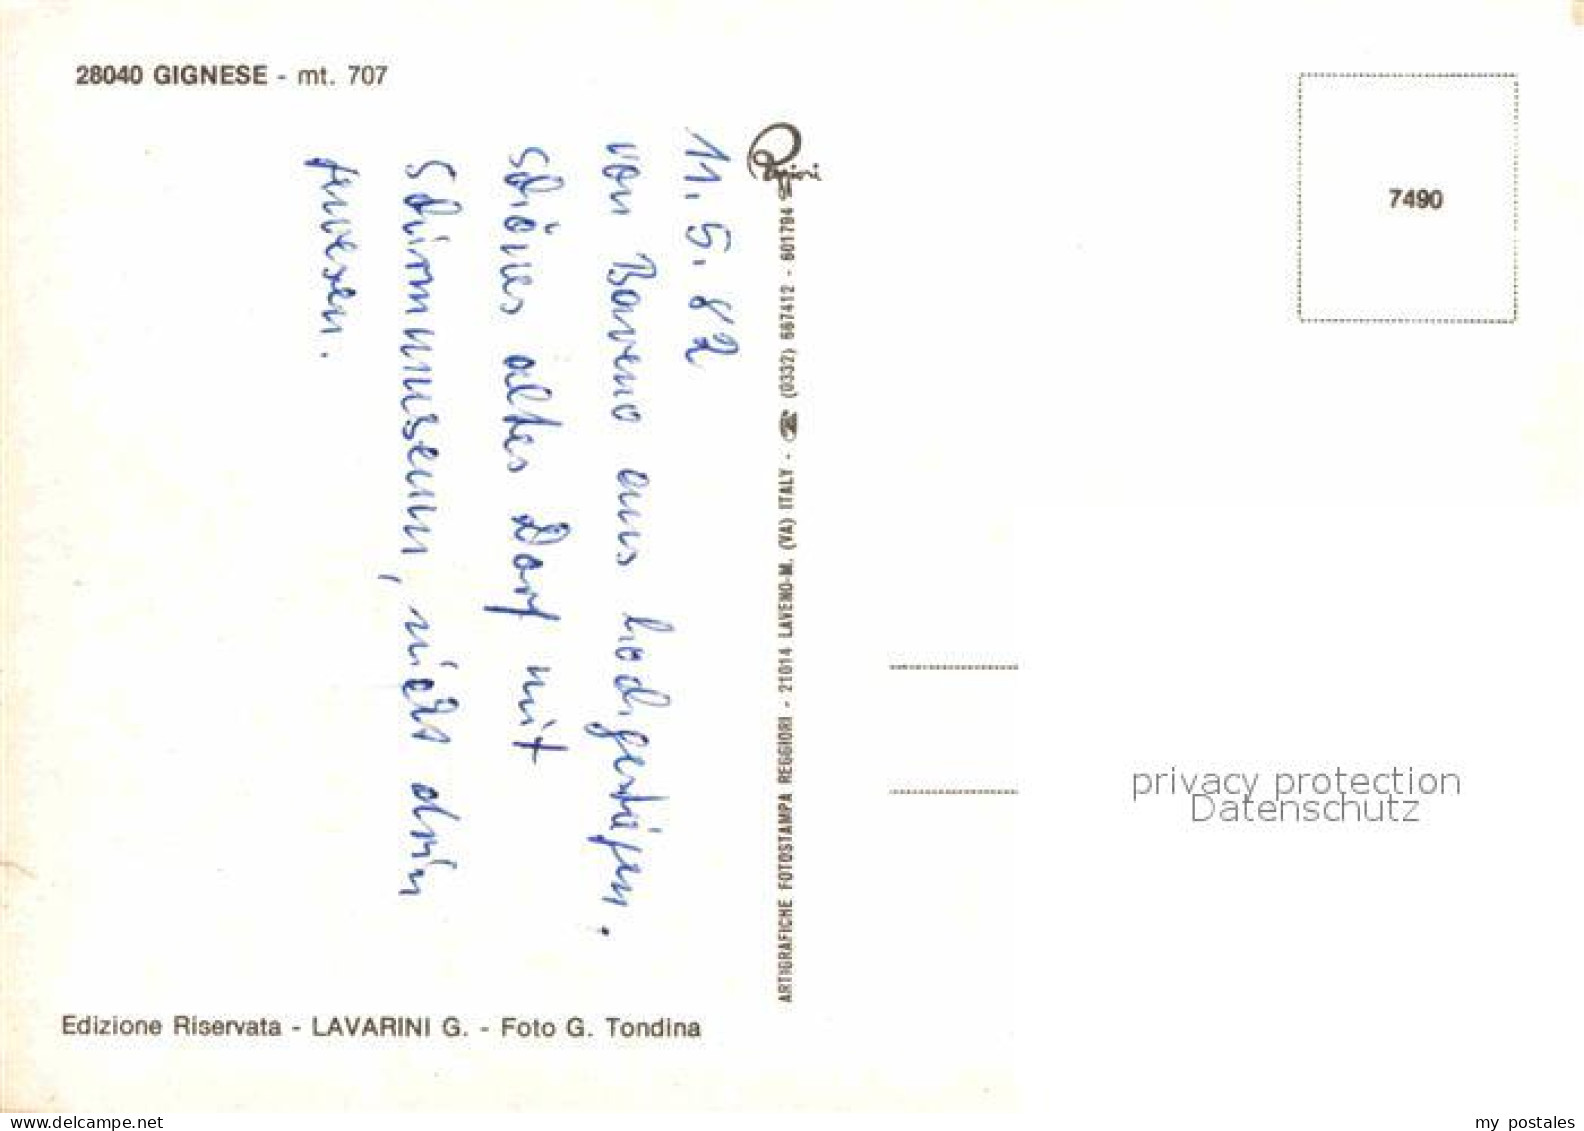 28040 GIGNESE - mt. 707
11.5.82
von Baveno aus hochgestiegen.
schönes altes Dorf mit
Schirmmuseum, nicht drin
gewesen.
Reggiori
ARTIGRAFICHE FOTOSTAMPA REGGIORI - 21014 LAVENO-M. (VA) ITALY - ☎ (0332) 667412 - 601794
7490
privacy protection
Datenschutz
Edizione Riservata - LAVARINI G. - Foto G. Tondina
delcampe.net
my postales